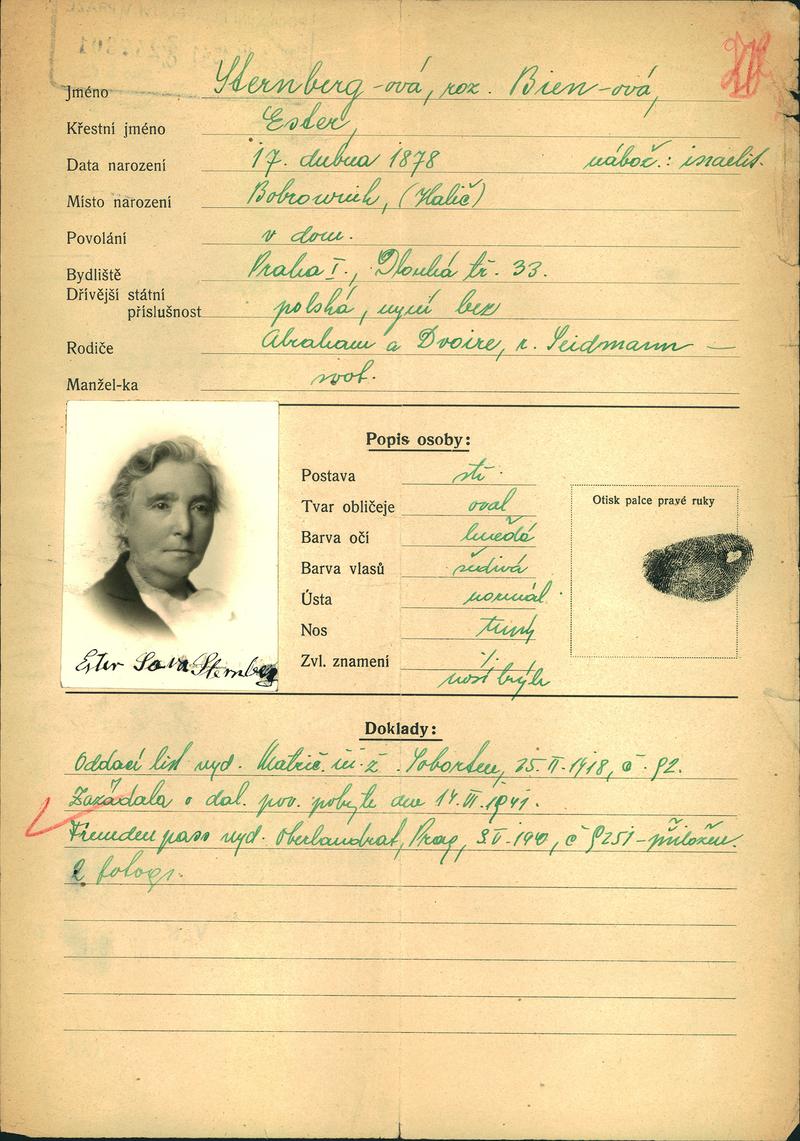 Jméno Sternberg-ová, roz. Bien-ová,
Křestní jméno Ester,
Data narození 17. dubna 1878 nábož.: israelit.
Místo narození Bobrownik, (Halič)
Povolání v dom.
Bydliště Praha I., Dlouhá tř. 33.
Dřívější státní
příslušnost polská, nyní bez
Rodiče Abraham a Dvoire, r. Seidmann —
Manžel-ka
Popis osoby:
Postava stř.
Tvar obličeje oval
Barva očí hnědá
Barva vlasů šedivá
Ústa normál.
Nos
Zvl. znamení ·/.
nosí brýle
Otisk palce pravé ruky
Ester Sara Sternberg
Doklady:
Oddací list vyd. Matrič. úř. ž. 25.II.1918, č. 92.
Zažádala o dal. pov. pobytu dne 14. 1941.
Fremdenpass vyd. Oberlandrat, Prag, č 9251 - přiložen.
2 fotogr.